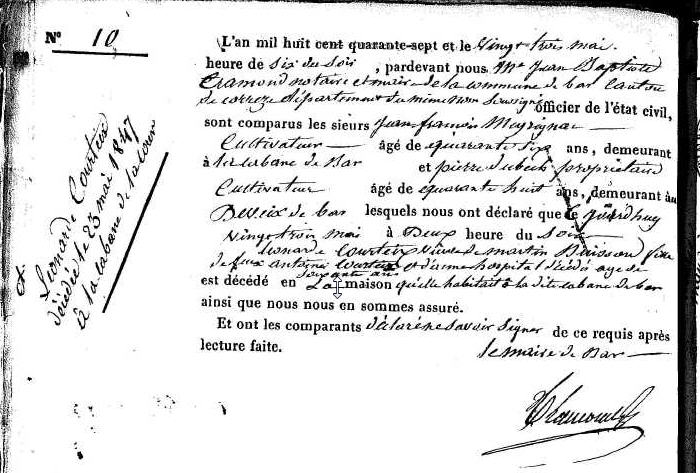 N° 10
Leonarde Courteix
décédée le 23 mai 1847
à la cabane de la tour
L'an mil huit cent quarante-sept et le Vingt trois mai
heure de Six du Soir, pardevant nous Me Jean Baptiste
Cramond notaire et maire de la commune de bar Canton
de correze département du même nom Soussigné officier de l'état civil,
sont comparus les sieurs Jean francois Meyrignac
Cultivateur âgé de quarante Six ans, demeurant
à la cabane de Bar et pierre propriétaire
Cultivateur âgé de quarante huit ans, demeurant au
de bar lesquels nous ont déclaré que ce jourd'huy
Vingt trois mai à Deux heure du Soir
Leonarde Courteix Veuve de martin Buisson fille
de feux antoine Courteix et d'anne hospital Décédé age de
soixante ans
est décédé en La maison qu'elle habitait à la dite cabane de bar
ainsi que nous nous en sommes assuré.
Et ont les comparants déclaré ne Savoir Signer de ce requis après
lecture faite. le maire de Bar
Cramond